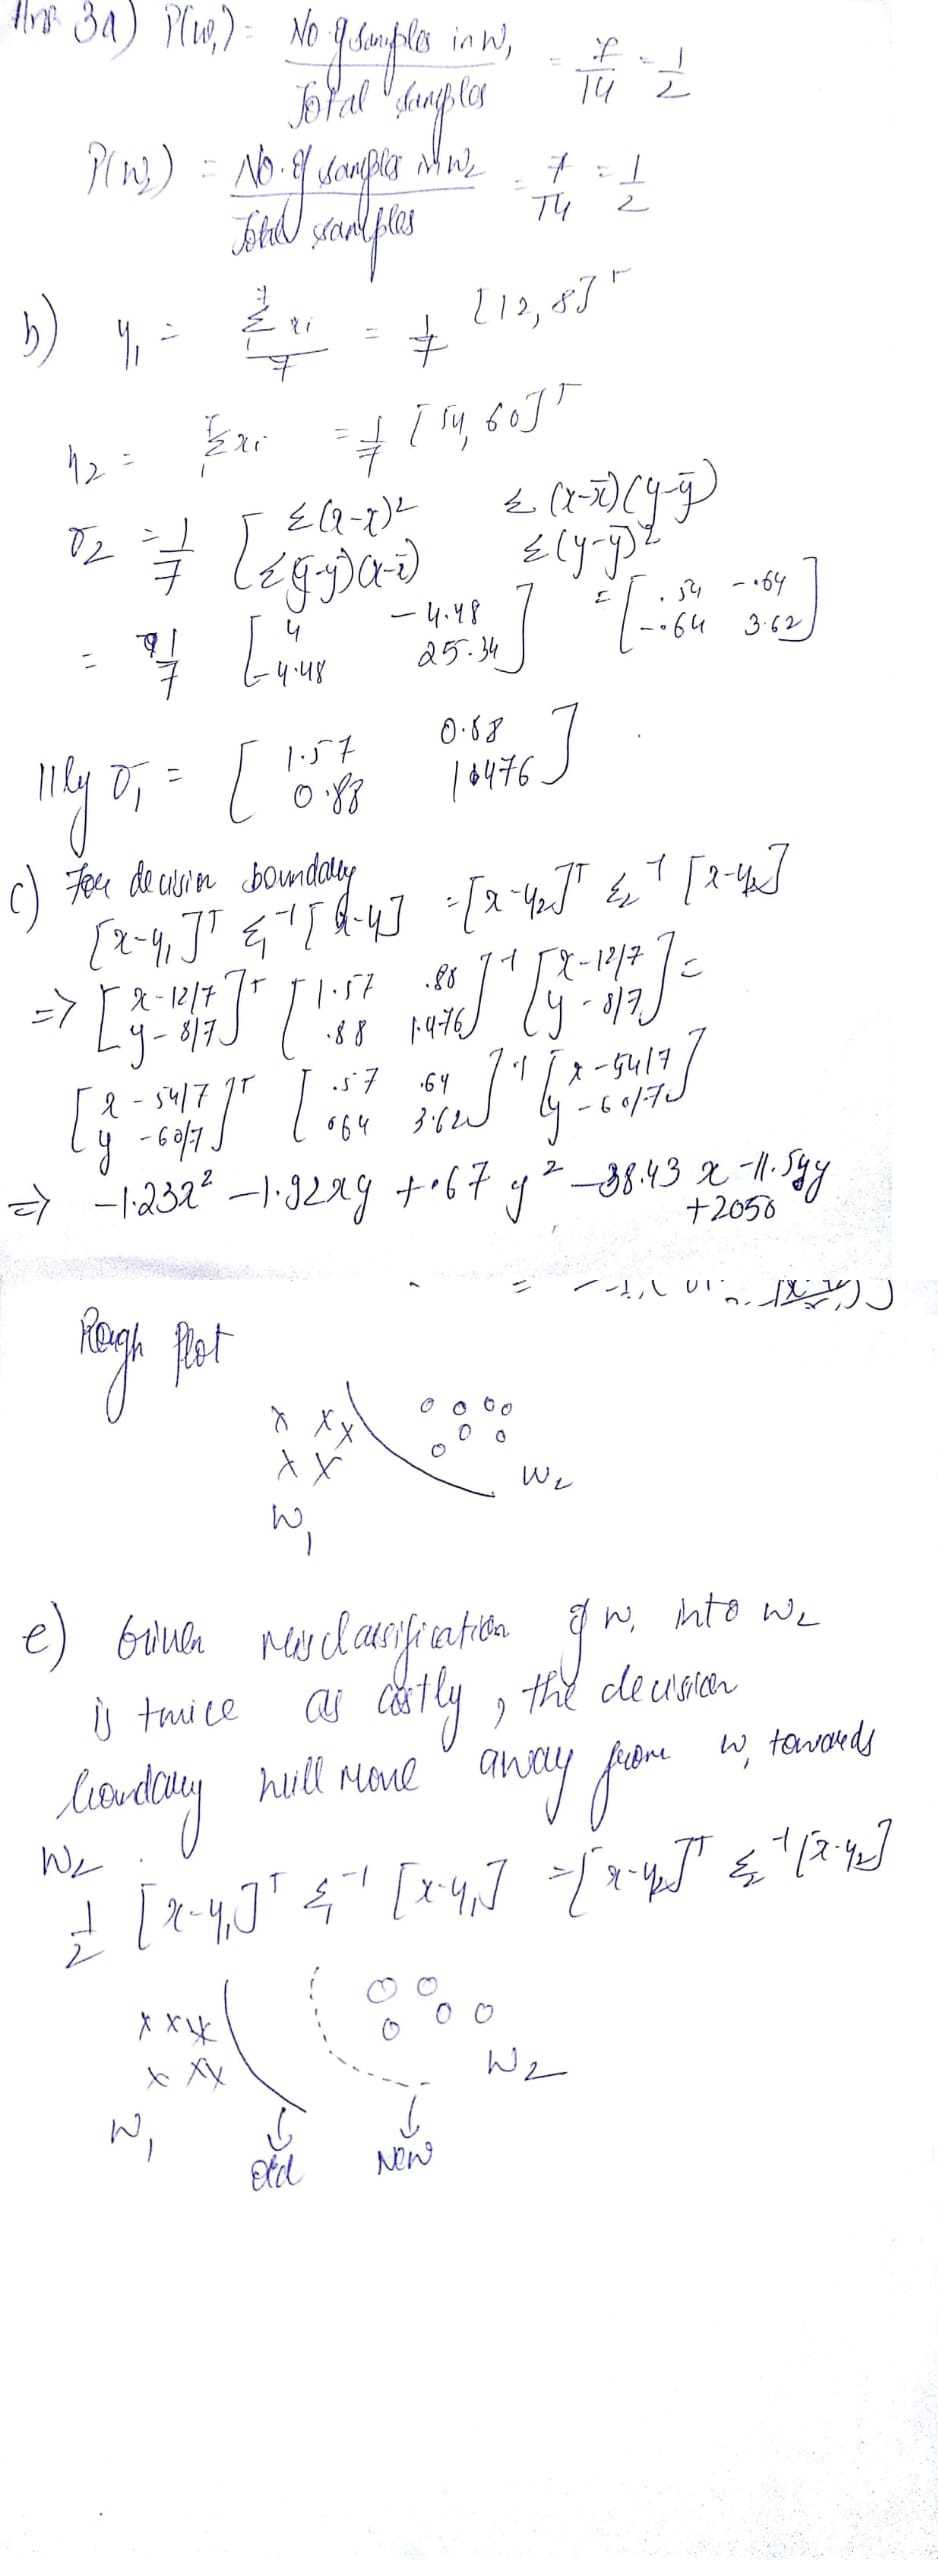 Ans 3a) P(w₁) = No. of samples in w₁ / Total samples = 7/14 = 1/2
P(w₂) = No. of samples in w₂ / Total samples = 7/14 = 1/2
b) μ₁ = Σ₁⁷ xi / 7 = 1/7 [12, 8]ᵀ
μ₂ = Σ₁⁷ xi = 1/7 [54, 60]ᵀ
σ₂ = 1/7 [ Σ(x-x̄)² Σ(x-x̄)(y-ȳ)
Σ(ȳ-y)(x-x̄) Σ(y-ȳ)²
= 1/7 [ 4 -4.48
-4.48 25.34 ] = [ .54 -.64
-.64 3.62 ]
111ly σ₁ = [ 1.57 0.88
0.88 1.476 ]
c) For decision boundary
[x-μ₁]ᵀ Σ₁⁻¹ [x-μ] = [x-μ₂]ᵀ Σ₂⁻¹ [x-μ₂]
=> [ x-12/7
y-8/7 ]ᵀ [ 1.57 .88
.88 1.476 ]⁻¹ [ x-12/7
y-8/7 ] =
[ x-54/7
y-60/7 ]ᵀ [ .57 .64
.64 3.62 ]⁻¹ [ x-54/7
y-60/7 ]
=> -1.23x² -1.92xy +.67y² -38.43x -11.54y
+2050
Rough Plot
w₂
w₁
e) Given misclassification of w₁ into w₂
is twice as costly, the decision
boundary will move away from w₁ towards
w₂.
1/2 [x-μ₁]ᵀ Σ₁⁻¹ [x-μ₁] = [x-μ₂]ᵀ Σ₂⁻¹ [x-μ₂]
w₂
w₁
old New